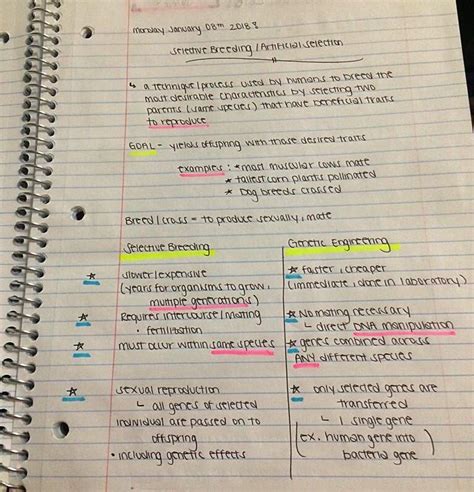 monday January 08th 2018
Selective Breeding / Artificial Selection
↳ a technique/process used by humans to breed the
most desirable characteristics by selecting two
parents (same species) that have beneficial traits
to reproduce
GOAL - yields offspring with those desired traits
examples: * most muscular cows mate
* tallest corn plants pollinated
* Dog breeds crossed
Breed/cross - to produce sexually, mate
Selective Breeding
* slower/expensive
(years for organisms to grow,
multiple generations)
* Requires intercourse/mating
• fertilization
* must occur within same species
* sexual reproduction
↳ all genes of selected
individual are passed on to
offspring
• including genetic effects
Genetic Engineering
* faster, cheaper
(immediate, done in laboratory)
* No mating necessary
↳ direct DNA manipulation
* genes combined across
ANY different species
* only selected genes are
transferred
↳ 1 single gene
(ex. human gene into
bacteria gene)